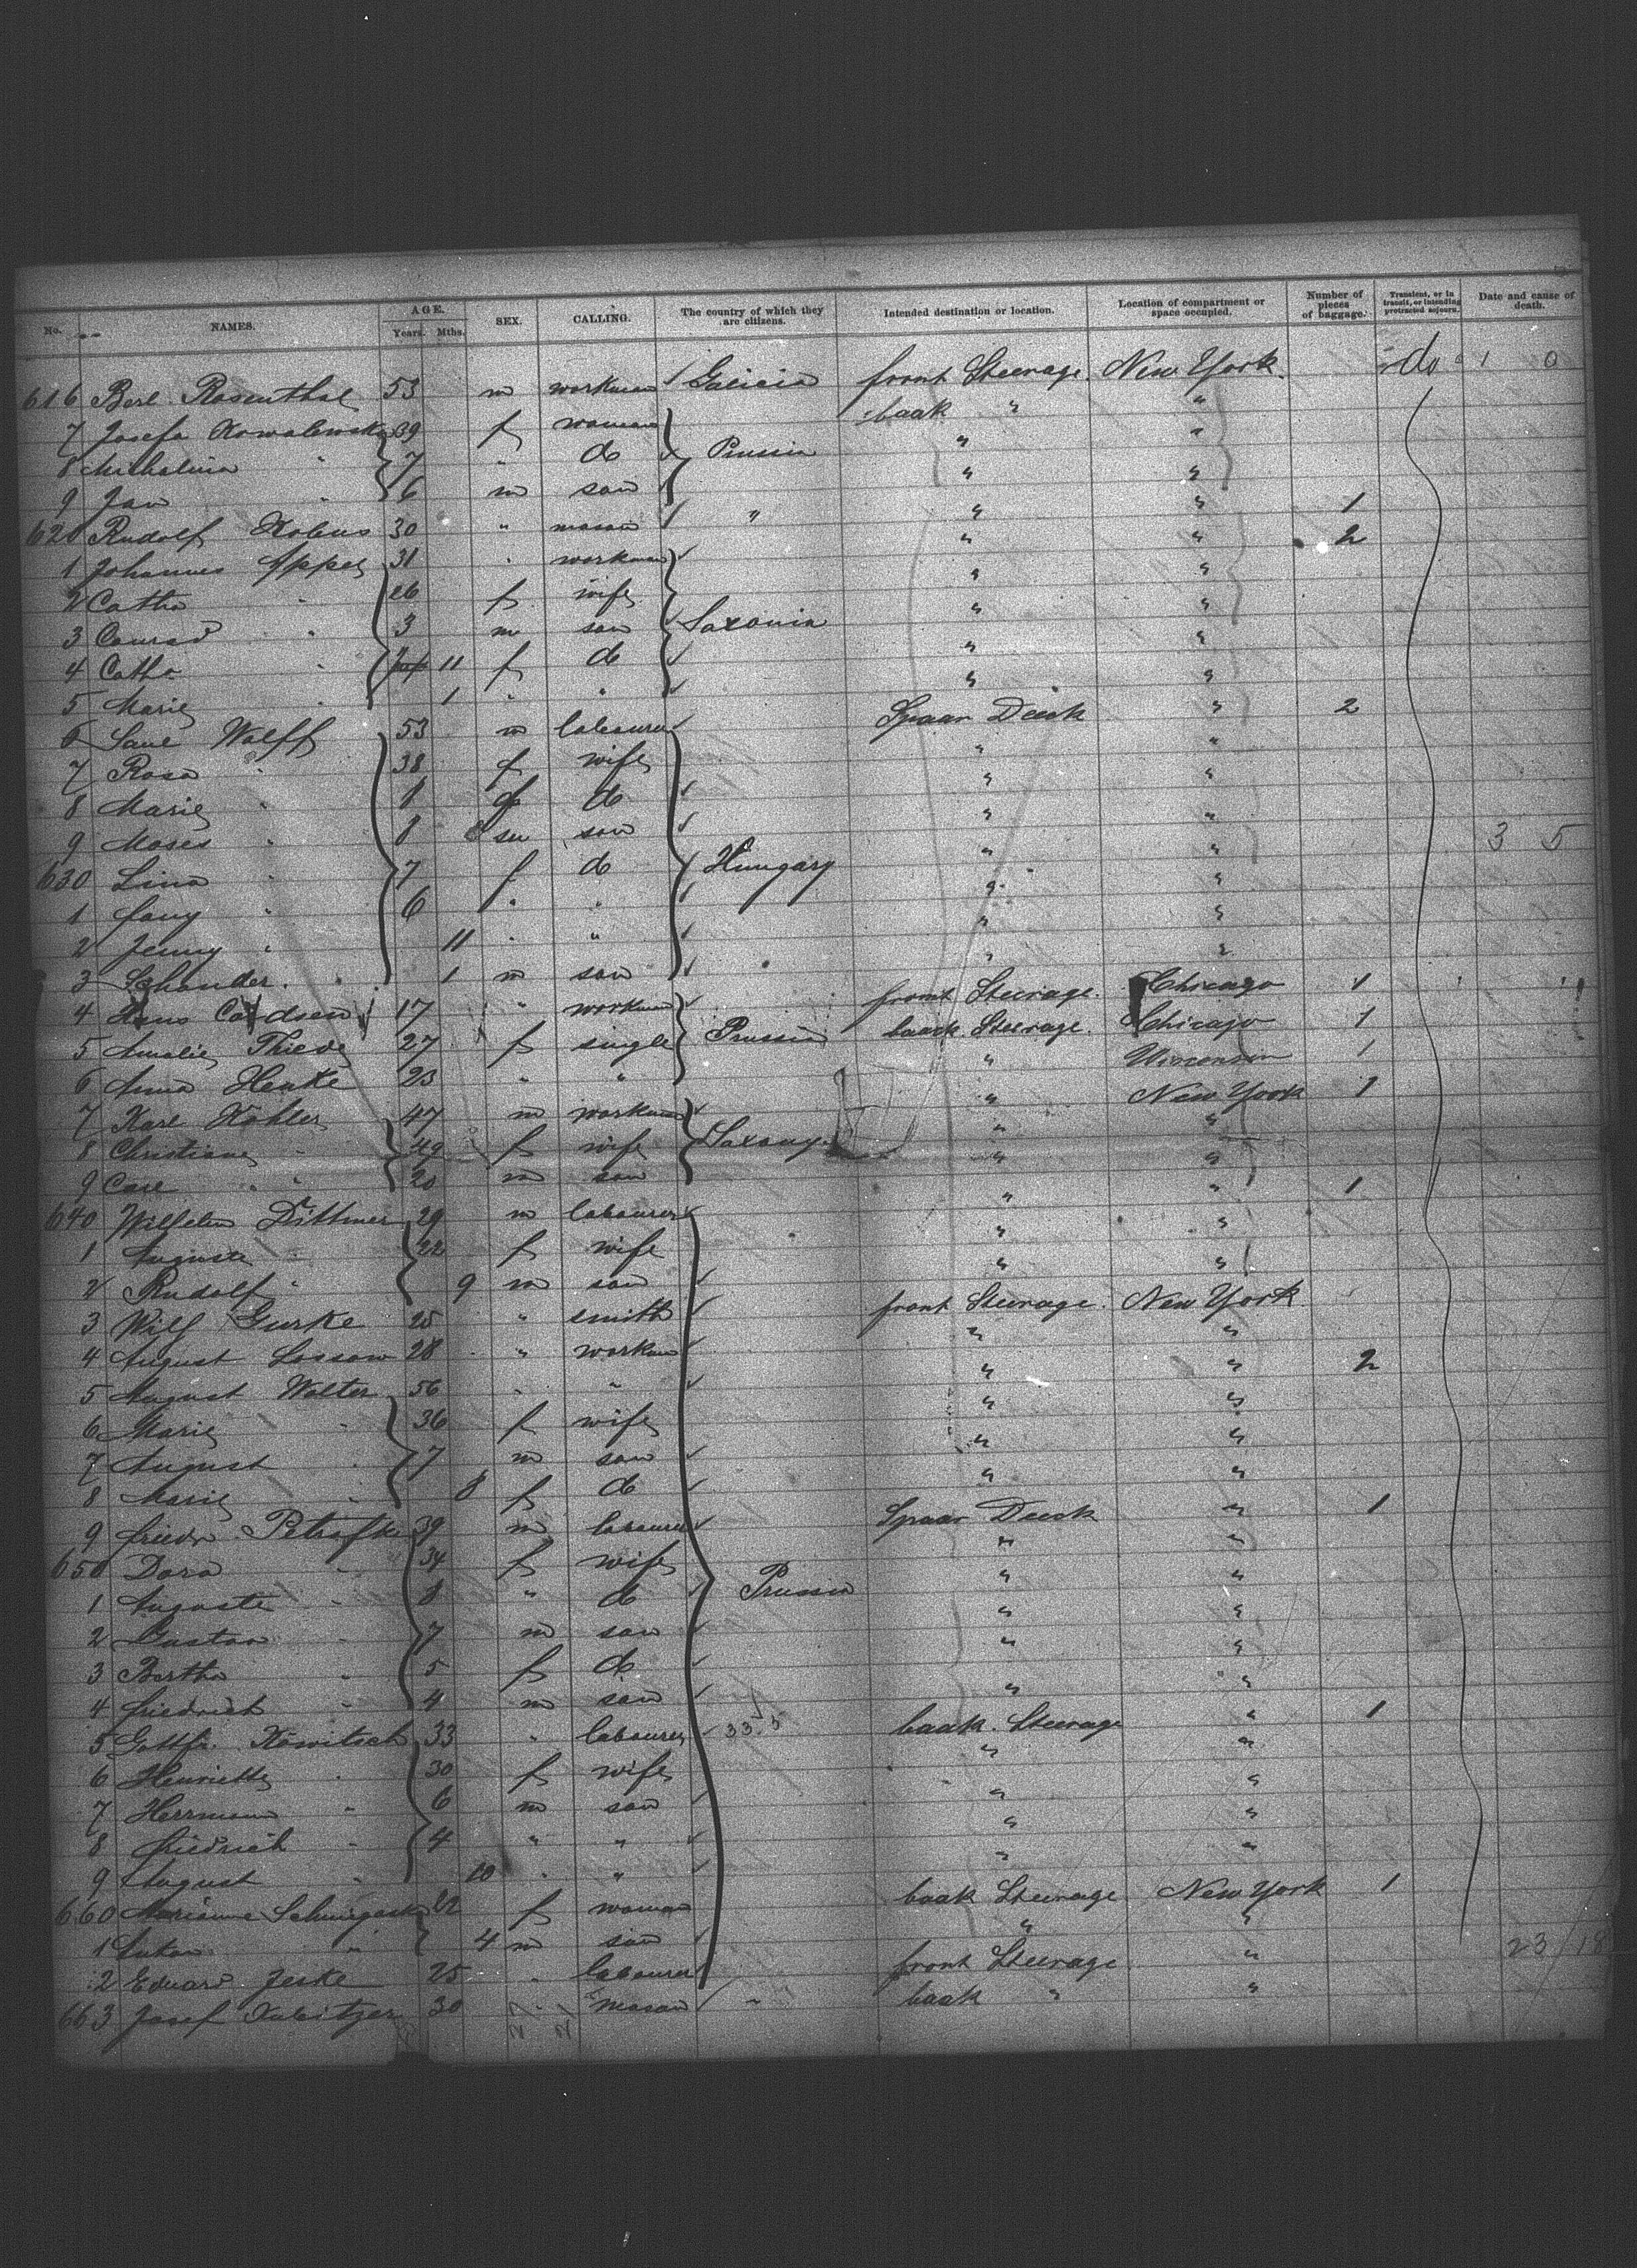 No. NAMES. AGE. Years. Mths. SEX. CALLING. The country of which they are citizens. Intended destination or location. Location of compartment or space occupied. Number of pieces of baggage. Transient, or in transit, or intending protracted sojourn. Date and cause of death.
616 Berl Rosenthal 53 m workman Galicia front Steerage New York do 1 0
7 Josefa Kowalewska 39 f woman baak " "
8 Michalina " 7 " do Prussia " "
9 Jan " 6 m son " "
620 Rudolf Kobus 30 " mason " " " 1
1 Johannes Appel 31 " workman " " 2
2 Catha " 26 f wife " "
3 Conrad " 3 m son Saxonia " "
4 Catha " 11 f do " "
5 Marie " 1 " " " "
6 Saul Wolff 53 m labourer Spaar Deck " 2
7 Rosa " 38 f wife " "
8 Marie " f do " "
9 Moses " 8 son " "
630 Lina " 7 f do Hungary " " 3 5
1 Fany " 6 " " " "
2 Jenny " 11 " " " "
3 Schander " 1 m son " "
4 Hans 17 " workman front Steerage Chicago 1
5 Amalie Thiede 27 f single Prussia baark Steerage Chicago 1
6 Anna Henke 23 " " " Wisconsin 1
7 Karl Köhler 47 m workman " New York 1
8 Christiane " 49 f wife Saxony " "
9 Carl " 20 m son " "
640 Wilhelm Dittmer 29 m labourer " " 1
1 Auguste " 22 f wife " "
2 Rudolf " 9 m son " "
3 Wilh Gurke 25 " smith front Steerage New York
4 August Lossow 28 " workman " "
5 August Walter 56 " " " " 2
6 Marie " 36 f wife " "
7 August " 7 m son " "
8 Marie " 8 f do " "
9 Friedr 39 m labourer Spaar Deck " 1
650 Dora " 34 f wife " "
1 Auguste " 8 " do Prussia " "
2 Gustav " 7 m son " "
3 Bertha " 5 f do " "
4 Friedrich " 4 m son " "
5 Gottfr. Kowitsch 33 " labourer 33.5 baak Steerage " 1
6 Henriette " 30 f wife " "
7 Herrmann " 6 m son " "
8 Friedrich " 4 " " " "
9 August " 10 " " " "
660 Marianne 22 f woman baak Steerage New York 1
1 Anton " 4 m son " "
2 Eduard Jeske 25 " labourer front Steerage " 23/18
663 Josef Kubitzer 30 " mason " baak " "